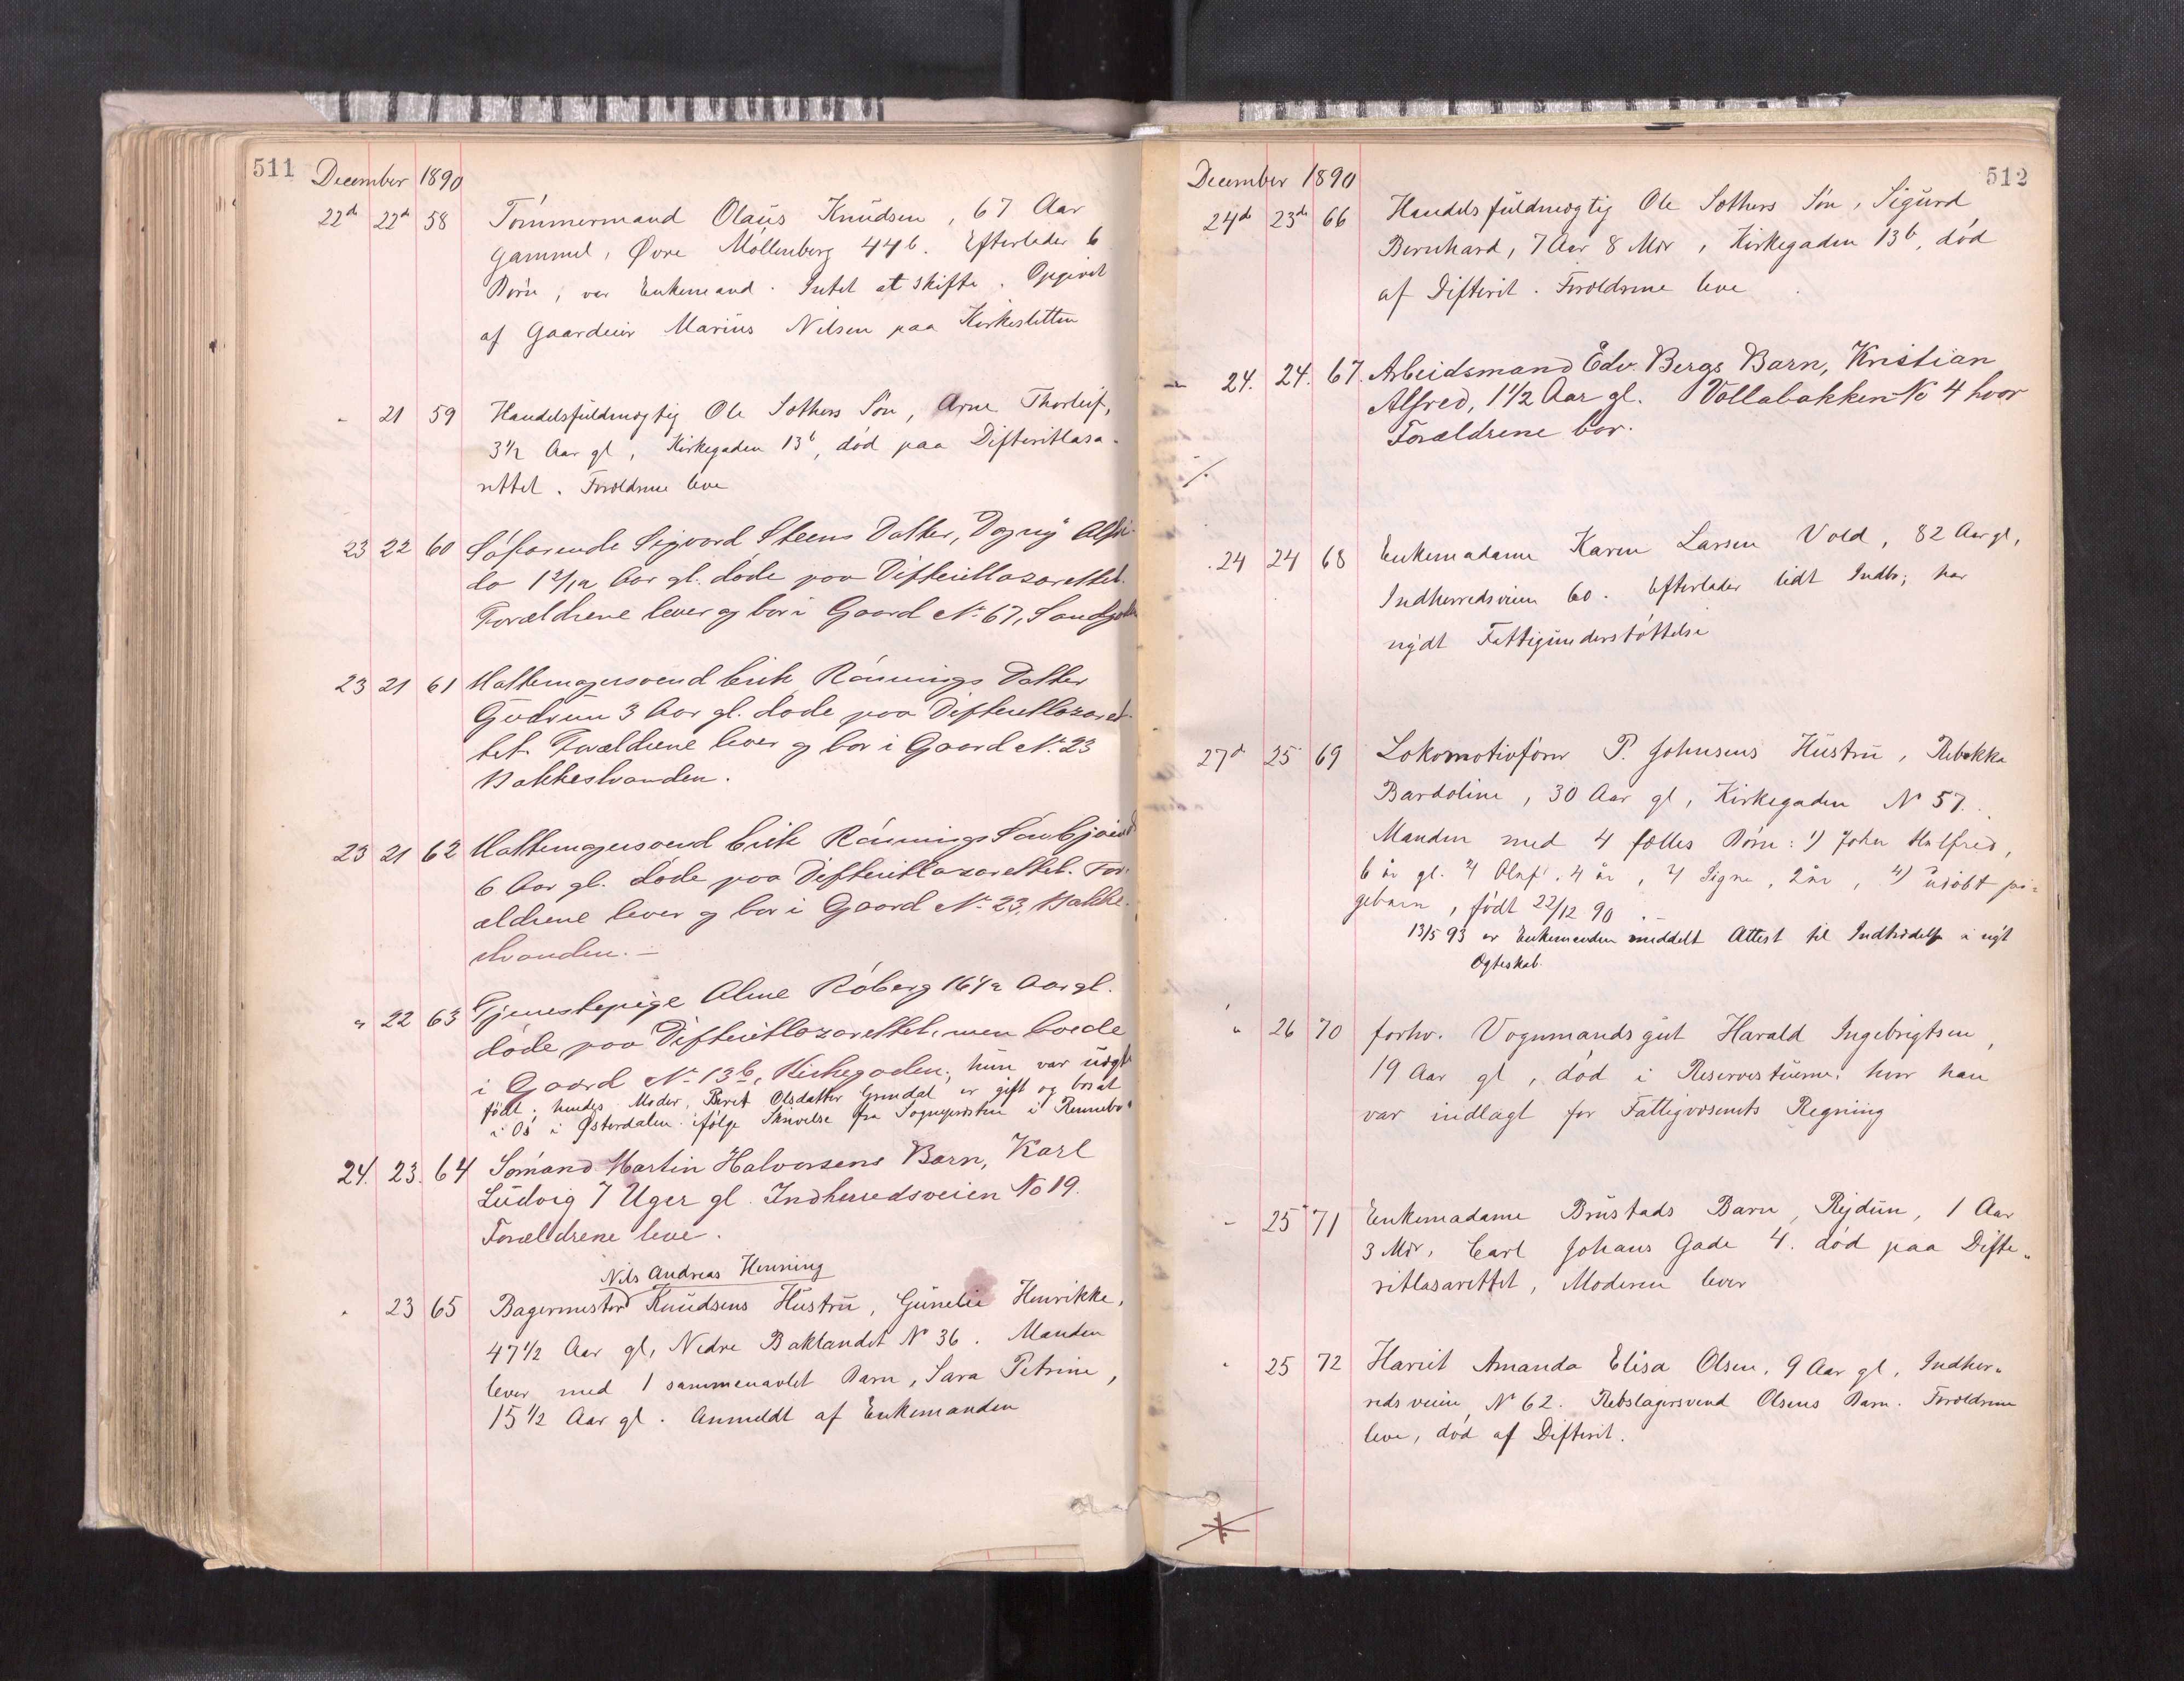 511 December 1890
22de 22de 58 Tömmermand Olaüs Knüdsen, 67 Aar
gammel, Øvre Möllenberg 44b. Efterlader 6
Börn, var Enkemand. Intet at skifte. Opgivet
af Gaardeier Mariüs Nilsen paa Kirkesletten
- 21 59 Handelsfüldmægtig Ole Sothers Sön, Arne Thorleif,
3½ Aar gl, Kirkegaden 13b, död paa Difteritlasa-
rettet. Forældrene leve
23 22 60 Söfarende Sigvard Steens Datter, Dagny Alfri-
da 1 2/12 Aar gl. döde paa Difteritlazarettet.
Forældrene lever og bor i Gaard No 67, Sandgaden
23 21 61 Hattemagersvend Erik Rönnings Datter
Güdrun 3 Aar gl. döde paa Difteritlazaret-
tet. Forældrene lever og bor i Gaard No 23
Bakkestranden.
23 21 62 Hattemagersvend Erik Rönnings Sön
6 Aar gl. döde paa Difteritlazarettet. For-
ældrene lever og bor i Gaard No 23, Bakke-
stranden. -
" 22 63 Tjenestepige Aline Röberg 16½ Aar gl.
döde paa Difteritlazarettet, men boede
i Gaard No 13b, Kirkegaden; hün var üægte
födt; hendes Moder, Berit Olsdatter Grindal er gift og bosat
i Os i Østerdalen ifölge Skrivelse fra Sognepresten i Rennebo
24. 23. 64 Sömand Martin Halvorsens Barn, Karl
Lüdvig 7 Uger gl. Indherredsveien No 19.
Forældrene leve.
Nils Andreas Henning
" 23 65 Bagermester Knüdsens Hüstrü, Günelie Henrikke,
47½ Aar gl, Nedre Baklandet No 36. Manden
lever med 1 sammenavlet Barn, Sara Petrine,
15½ Aar gl. Anmeldt af Enkemanden
December 1890 512
24de 23de 66 Handelsfüldmægtig Ole Sothers Sön, Sigürd
Bernhard, 7 Aar 8 Mdr, Kirkegaden 13b, död
af Difterit. Forældrene leve
- 24. 24. 67. Arbeidsmand Edv. Bergs Barn, Kristian
Alfred, 1 1/2 Aar gl. Vollabakken No 4 hvor
Forældrene bor.
24 24 68 Enkemadame Karen Larsen Vold, 82 Aar gl,
Indherredsveien 60. Efterlader lidt Indbo; har
nydt Fattigünderstöttelse
27de 25 69 Lokomotivförer P. Johnsens Hüstrü, Rebekka
Bardoline, 30 Aar gl, Kirkegaden No 57.
Manden med 4 fælles Börn: 1) Johan Halfred,
6 år gl. 2) Olaf, 4 år, 3) Signe, 2 år, 4) üdöbt pi-
gebarn, födt 22/12 90. -
13/5 93 er Enkemanden meddelt Attest til Indtrædelse i nyt
Ægteskab.
" 26 70 forhv. Vognmandsgüt Harald Ingebrigtsen,
19 Aar gl, död i Reservestüerne, hvor han
var indlagt for Fattigvæsenets Regning
- 25 71 Enkemadame Brüstads Barn, Rejdün, 1 Aar
3 Mdr, Carl Johans Gade 4. död paa Difte-
ritlasarettet, Moderen lever
" 25 72 Harriet Amanda Elisa Olsen, 9 Aar gl, Indher-
redsveien No 62. Rebslagersvend Olsens Barn. Forældrene
leve, död af Difterit.